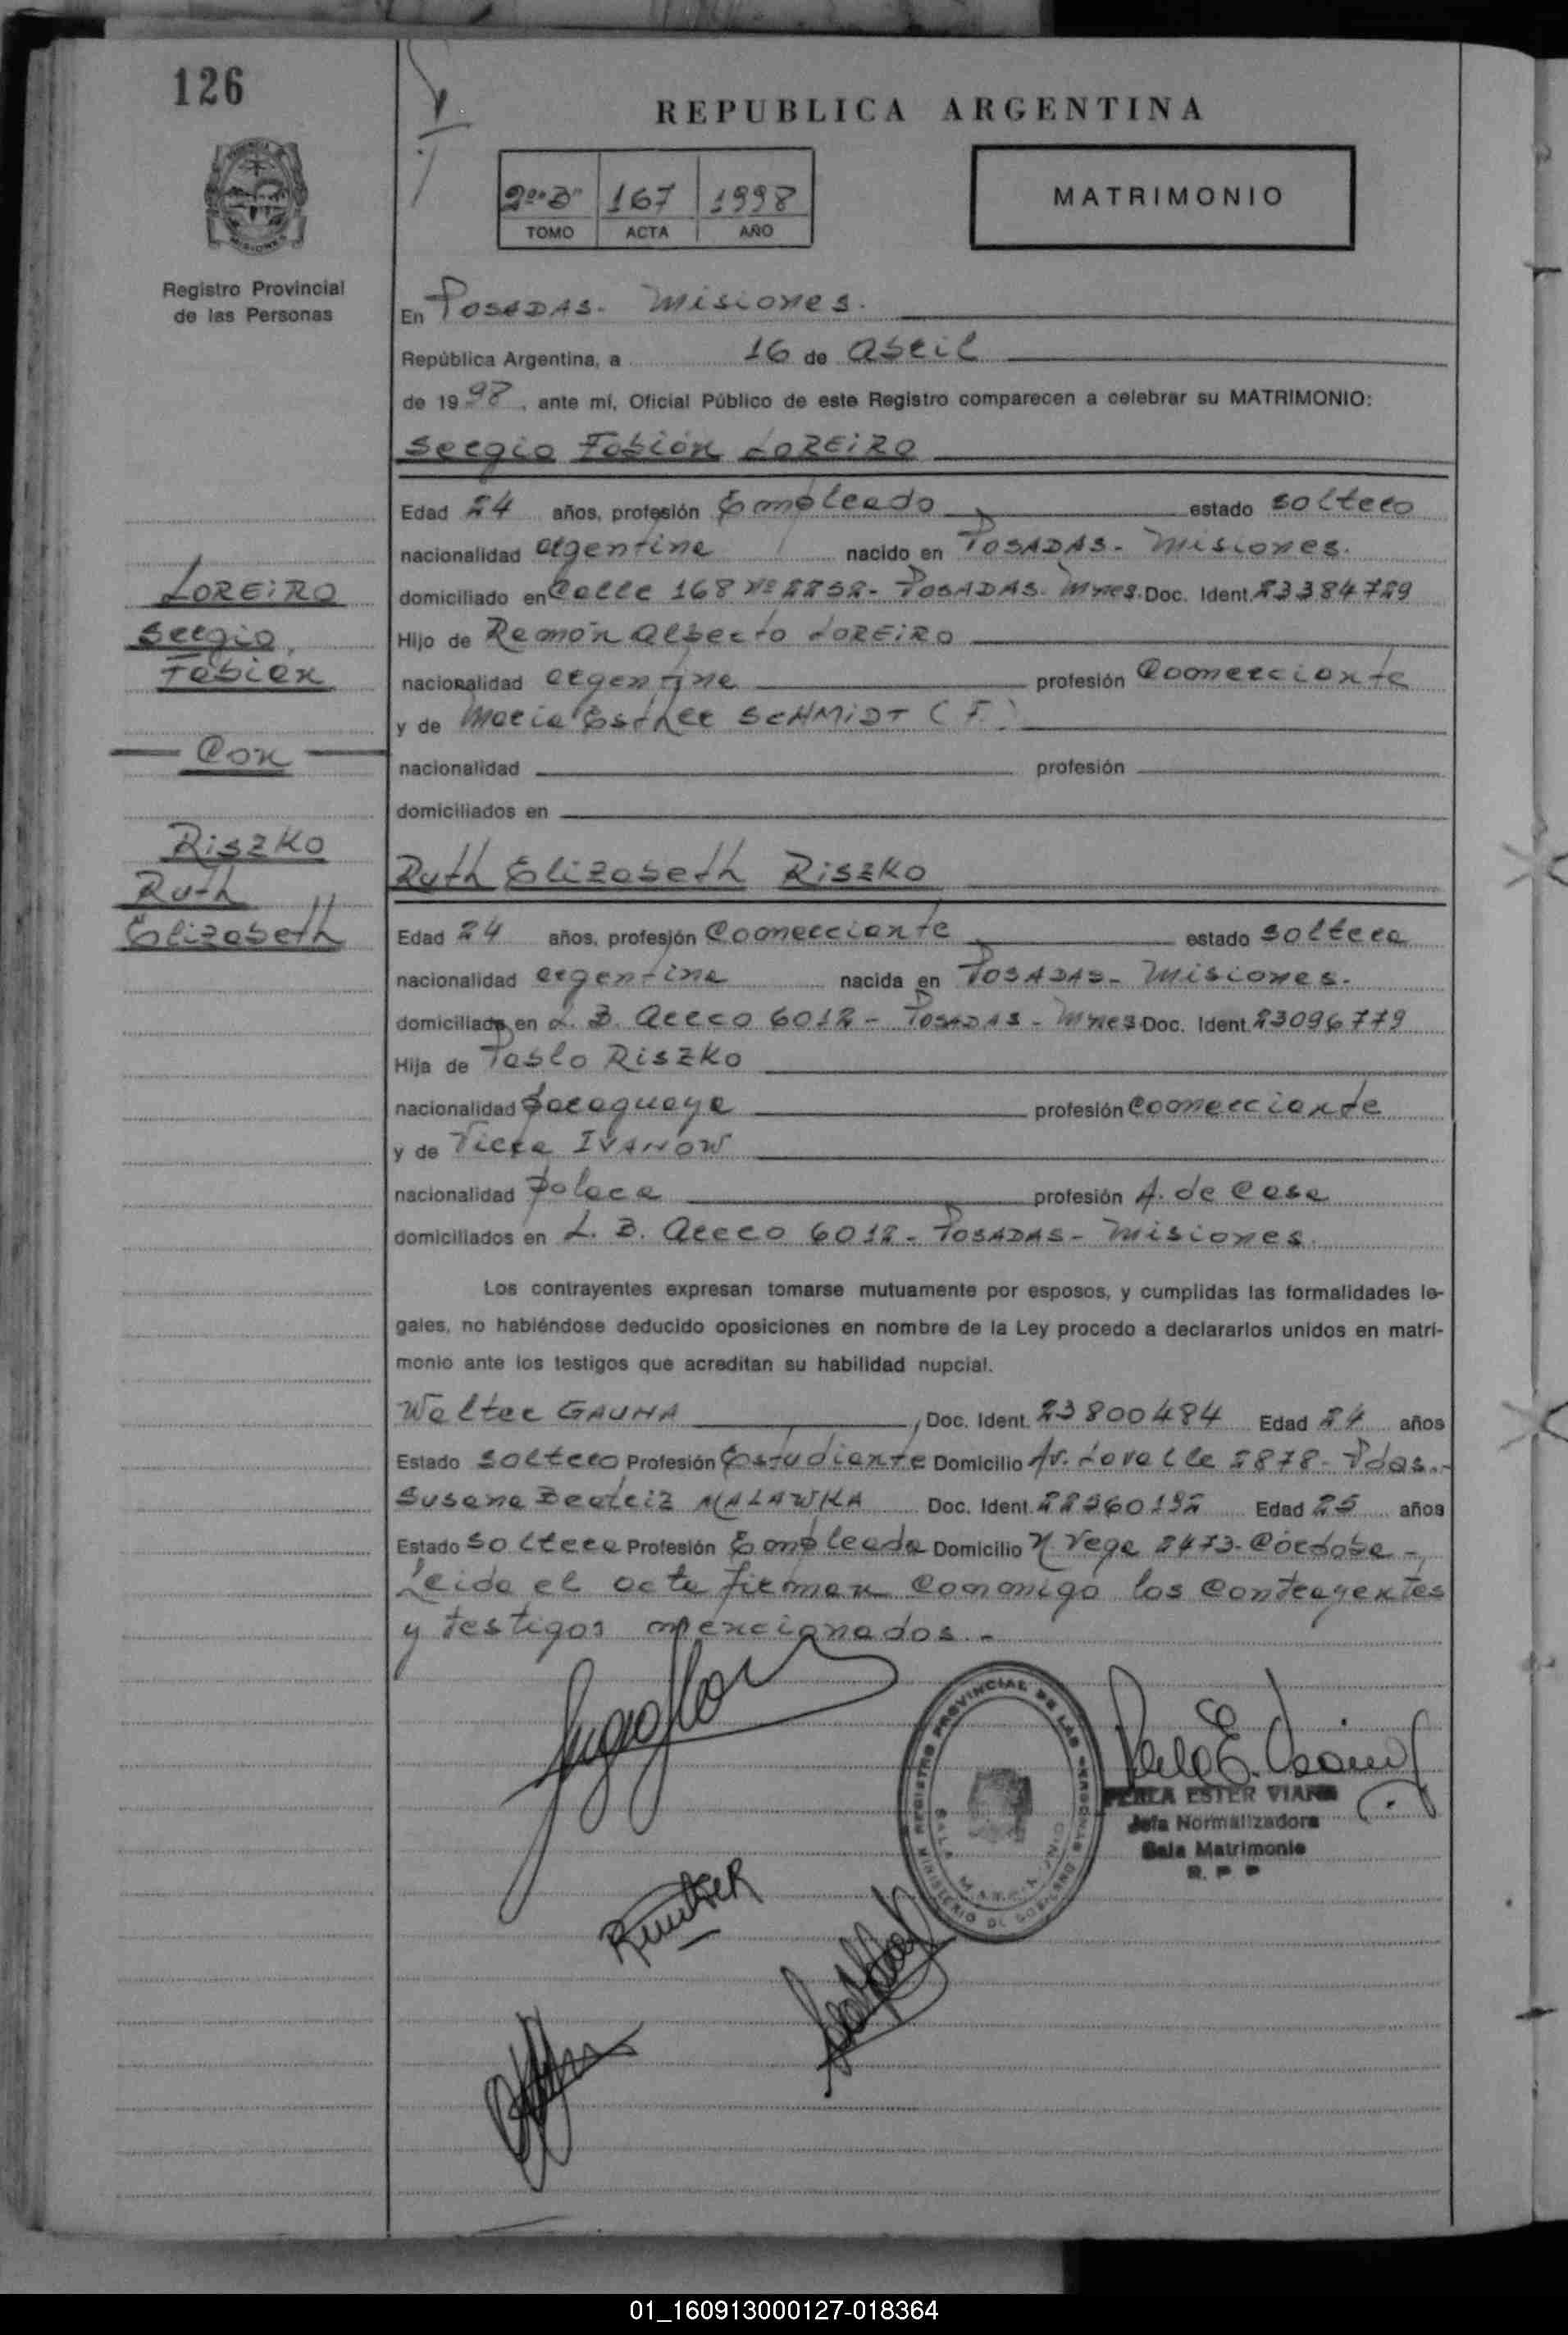 126
REPUBLICA ARGENTINA
167 1998
TOMO ACTA AÑO
MATRIMONIO
Registro Provincial
de las Personas
En POSADAS - Misiones.
República Argentina, a 16 de abril
de 1998, ante mí, Oficial Público de este Registro comparecen a celebrar su MATRIMONIO:
Sergio Fabián LOREIRO
Edad 24 años, profesión Empleado estado soltero
nacionalidad argentina nacido en POSADAS - Misiones.
domiciliado en Calle 168 Nº 2252 - POSADAS - Mnes. Doc. Ident. 23384729
Hijo de Ramón Alberto LOREIRO
nacionalidad argentina profesión Comerciante
y de María Esther SCHMIDT (F.)
nacionalidad profesión
domiciliados en
LOREIRO
Sergio
Fabián
Con
RISZKO
Ruth
Elizabeth
Ruth Elizabeth RISZKO
Edad 24 años, profesión Comerciante estado soltera
nacionalidad argentina nacida en POSADAS - Misiones.
domiciliada en L. B. Areco 6012 - POSADAS - Mnes. Doc. Ident. 23096779
Hija de Pablo RISZKO
nacionalidad paraguaya profesión Comerciante
y de Viera IVANOW
nacionalidad polaca profesión A. de casa
domiciliados en L. B. Areco 6012 - POSADAS - Misiones.
Los contrayentes expresan tomarse mutuamente por esposos, y cumplidas las formalidades le-
gales, no habiéndose deducido oposiciones en nombre de la Ley procedo a declararlos unidos en matri-
monio ante los testigos que acreditan su habilidad nupcial.
Walter GAUNA, Doc. Ident. 23800484 Edad 24 años
Estado soltero Profesión Estudiante Domicilio Av. Lavalle 2878 - Pdas. -
Susana Beatriz MALAWKA Doc. Ident. Edad 25 años
Estado soltera Profesión Empleada Domicilio Vega 2473 - Córdoba -
Leída el acta firman conmigo los contrayentes
y testigos mencionados. -
REGISTRO PROVINCIAL DE LAS PERSONAS
MINISTERIO DE GOBIERNO
SALA
PERLA ESTER VIANA
Jefa Normalizadora
Sala Matrimonio
R. P. P
01_160913000127-018364